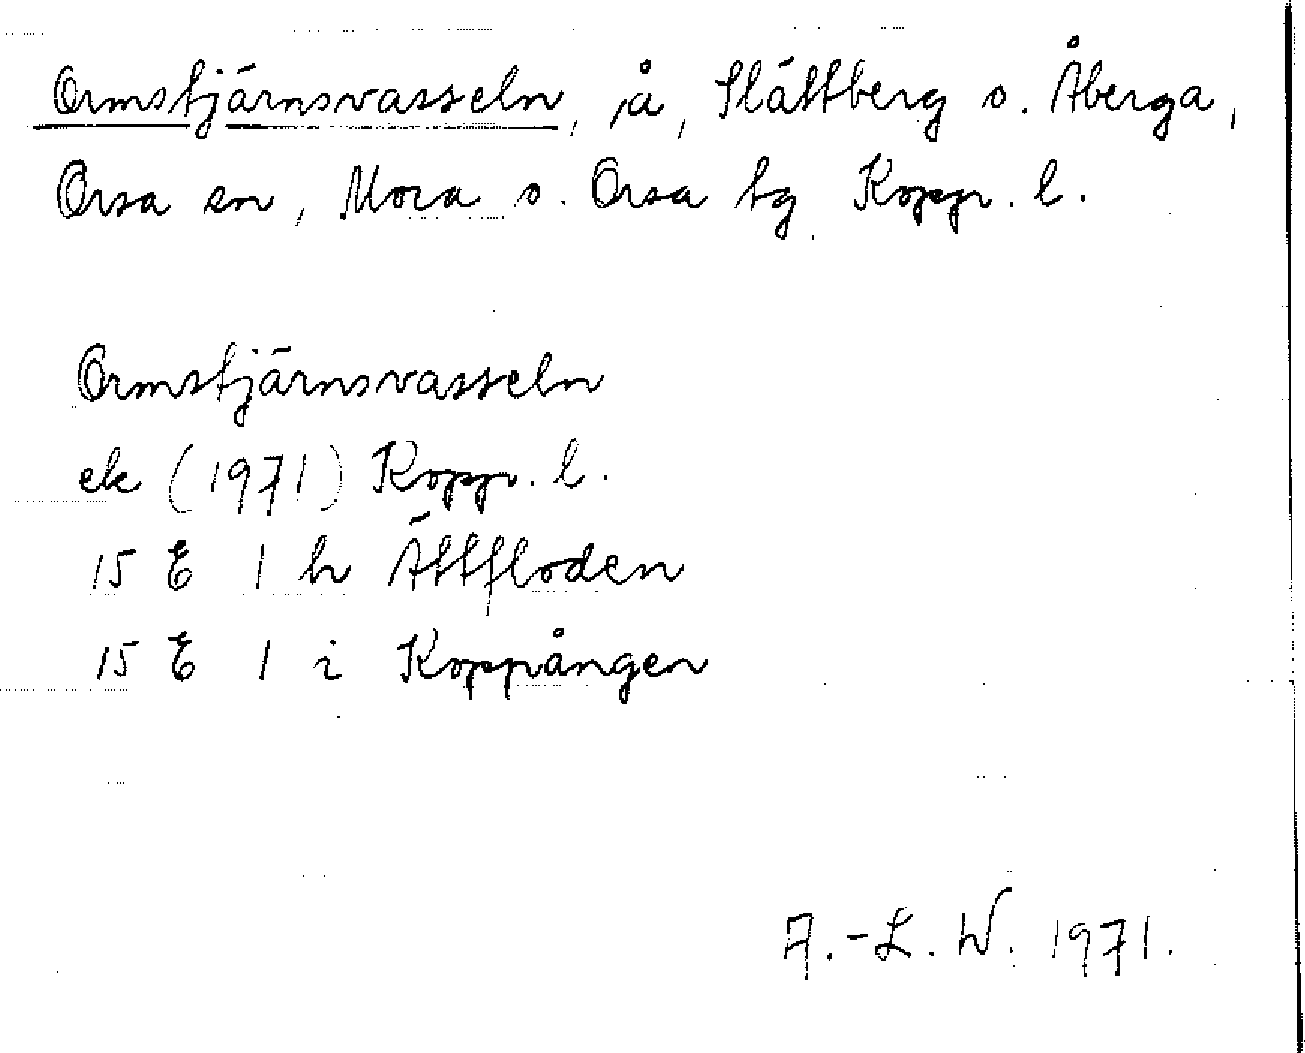 Ormstjärnsvasseln, å, Slättberg o. Åberga,
Orsa sn, Mora o. Orsa tg Kopp. l.
Ormstjärnsvasseln
ek (1971) Kopp. l.
15 E 1 h Ättfloden
15 E 1 i Koppången
A.-L. W. 1971.